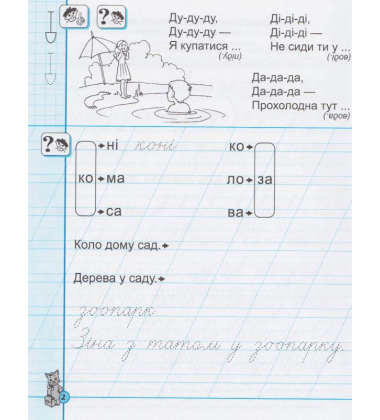 Ду-ду-ду,
Ду-ду-ду —
Я купатися ...
(йду)
Ді-ді-ді,
Ді-ді-ді —
Не сиди ти у ...
(воді)
Да-да-да,
Да-да-да —
Прохолодна тут ...
(вода)
?
?
ні коні
ко ма
са
ко
ло за
ва
Коло дому сад.
Дерева у саду.
зоопарк
Зіна з татом у зоопарку.
2